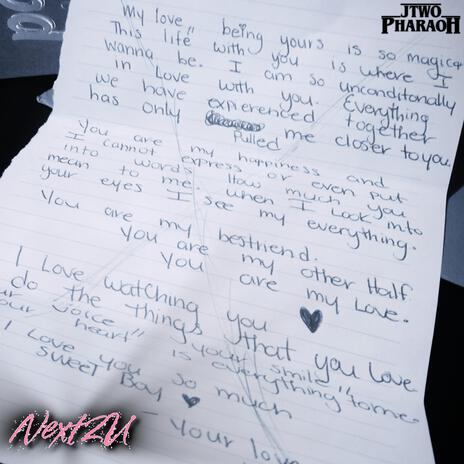 JTWO
PHARAOH
My love being yours is so magical
This life" with you is where I
wanna be. I am so unconditonally
in Love with you. Everything
we have experienced together
has only pulled me closer to you.
You are my happiness and
I cannot express or even put
into words How much you
mean to me. when I look into
your eyes I see my everything.
You are my bestfriend.
You are my other Half
You are my Love.
I Love watching you
do the things that you Love
"your smile"
ur voice" is everything tome
our heart"
I Love you so much
sweet Boy
- Your love
Next2U